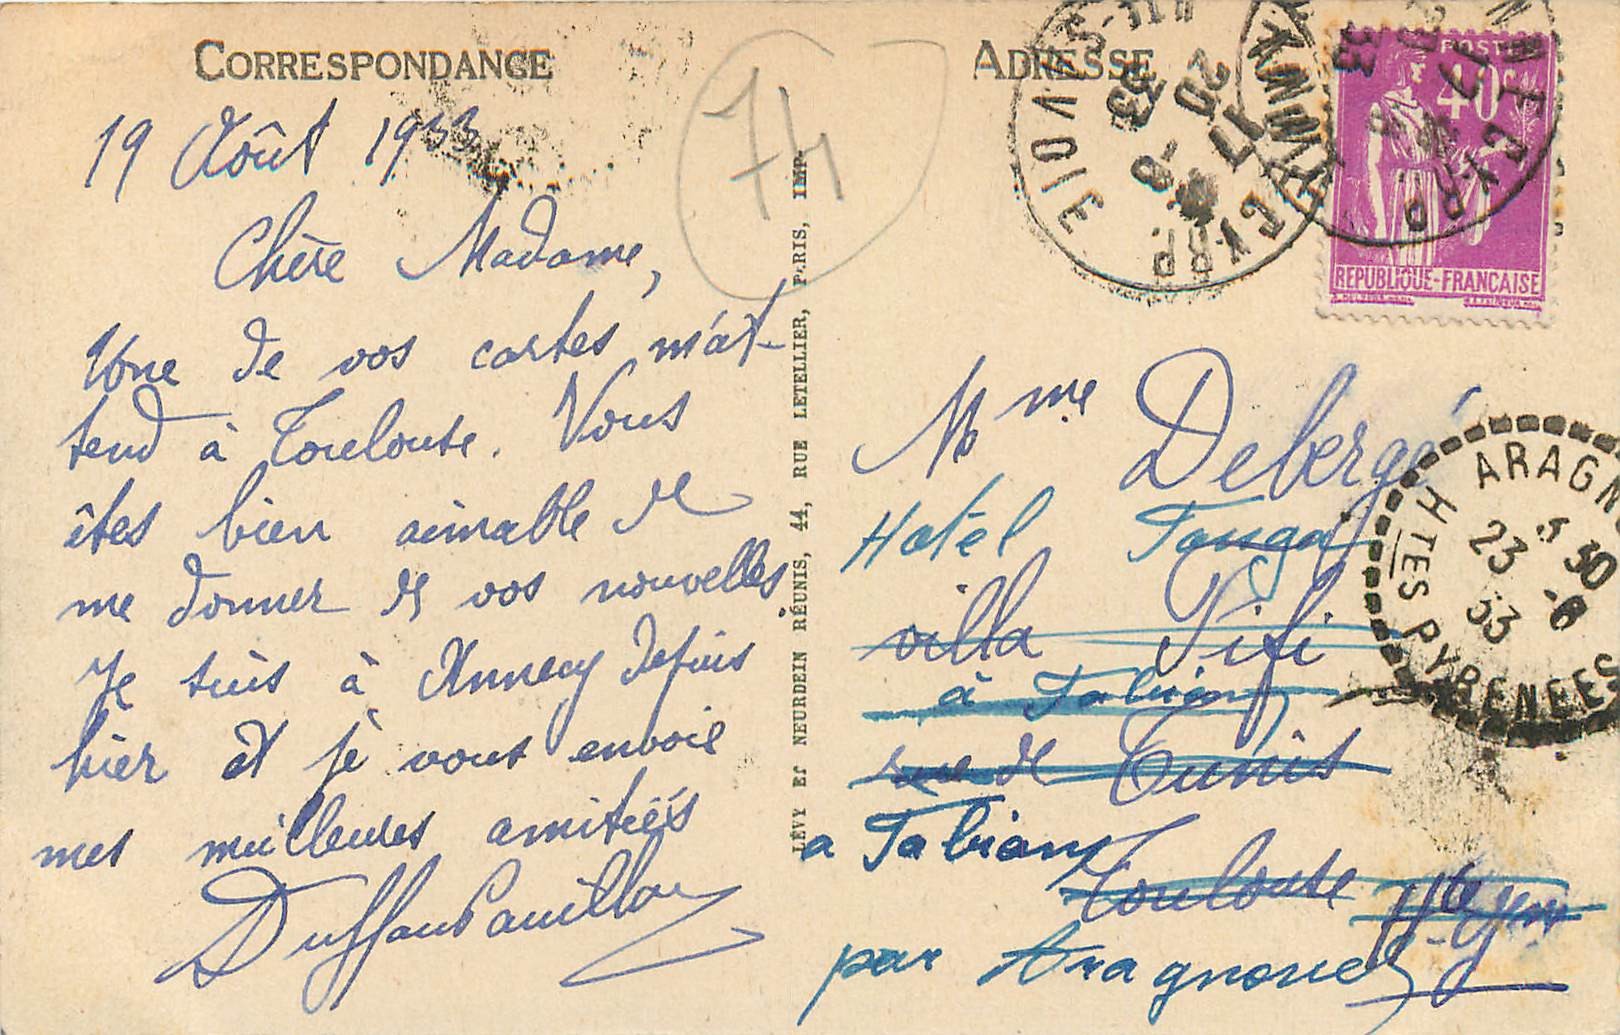 CORRESPONDANCE
19 Août 1933
Chère Madame,
Une de vos cartes m'at-
tend à Toulouse. Vous
êtes bien aimable de
me donner de vos nouvelles
Je suis à Annecy depuis
hier et je vous envoie
mes meilleures amitiés
74
LÉVY ET NEURDEIN RÉUNIS, 44, RUE LETELLIER, PARIS, IMP.
ADRESSE
SAVOIE
POSTES
40c
REPUBLIQUE-FRANCAISE
Mme Debergé
Hotel
villa Fifi
à Fabian
rue de Tunis
a Fabian
Toulouse Hte
par Aragnouet
ARAGN
23 -8
33
HTES PYRENEES